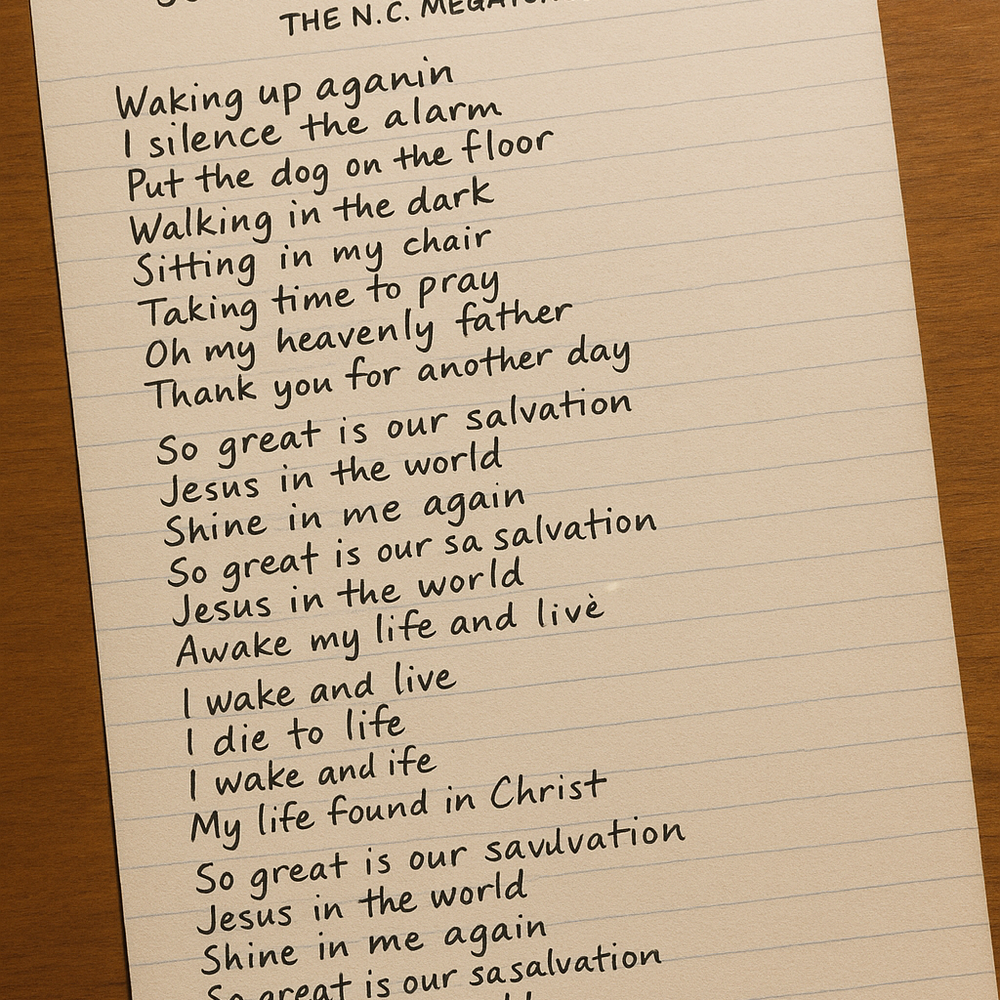 THE N.C.
Waking up aganin
I silence the alarm
Put the dog on the floor
Walking in the dark
Sitting in my chair
Taking time to pray
Oh my heavenly father
Thank you for another day
So great is our salvation
Jesus in the world
Shine in me again
So great is our sa salvation
Jesus in the world
Awake my life and livė
I wake and live
I die to life
I wake and ife
My life found in Christ
So great is our savulvation
Jesus in the world
Shine in me again
So great is our sasalvation